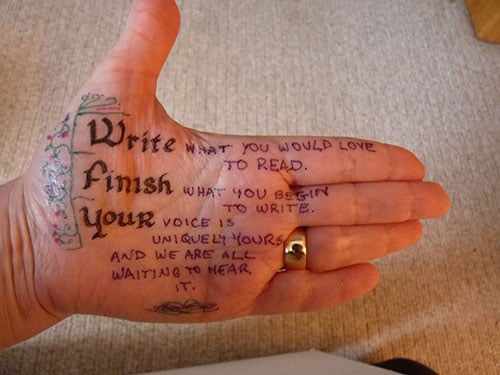 Write WHAT YOU WOULD LOVE
TO READ.
Finish WHAT YOU BEGIN
TO WRITE.
Your VOICE IS
UNIQUELY YOURS
AND WE ARE ALL
WAITING TO HEAR
IT.